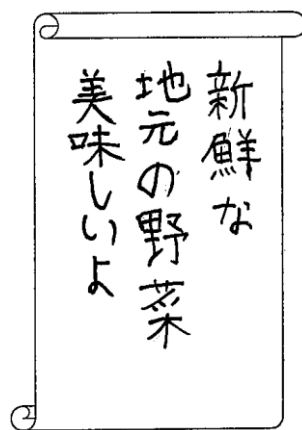 新鮮な
地元の野菜
美味しいよ